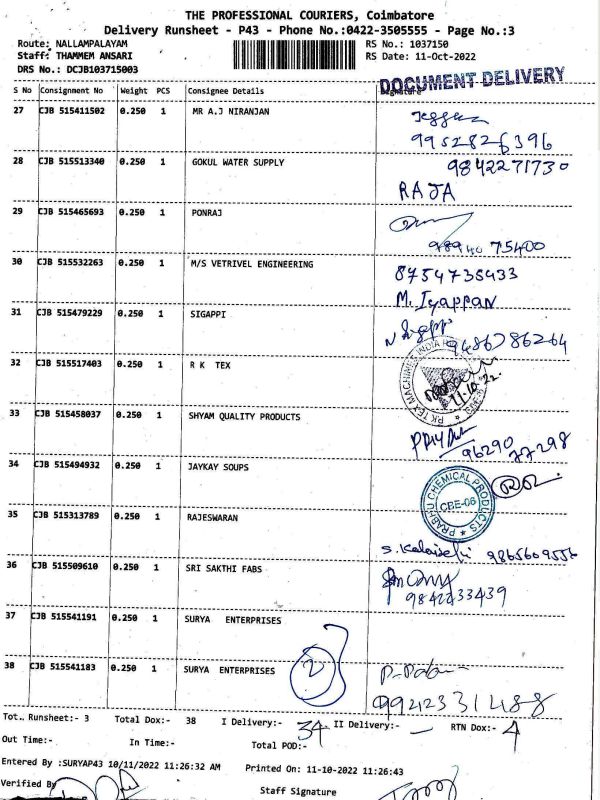 THE PROFESSIONAL COURIERS, Coimbatore
Delivery Runsheet - P43 - Phone No.:0422-3505555 - Page No.:3
Route: NALLAMPALAYAM RS No.: 1037150
Staff: THAMMEM ANSARI RS Date: 11-Oct-2022
DRS No.: DCJB103715003
DOCUMENT DELIVERY
S No Consignment No Weight PCS Consignee Details Signature
27 CJB 515411502 0.250 1 MR A.J NIRANJAN
9952826396
28 CJB 515513340 0.250 1 GOKUL WATER SUPPLY 9842271730
RAJA
29 CJB 515465693 0.250 1 PONRAJ
98940 75400
30 CJB 515532263 0.250 1 M/S VETRIVEL ENGINEERING 8754738433
M. Iyappan
31 CJB 515479229 0.250 1 SIGAPPI
9486786264
32 CJB 515517403 0.250 1 R K TEX
RK TEX MACHINES INDIA
11.10.22
33 CJB 515458037 0.250 1 SHYAM QUALITY PRODUCTS
96290 77298
34 CJB 515494932 0.250 1 JAYKAY SOUPS
PRABHU CHEMICAL PRODUCTS
CBE-06
35 CJB 515313789 0.250 1 RAJESWARAN
S. Kalaiselvi 9865609556
36 CJB 515509610 0.250 1 SRI SAKTHI FABS
9842233439
37 CJB 515541191 0.250 1 SURYA ENTERPRISES
38 CJB 515541183 0.250 1 SURYA ENTERPRISES 2
9942331488
Tot. Runsheet:- 3 Total Dox:- 38 I Delivery:- 34 II Delivery:- RTN Dox:- 4
Out Time:- In Time:- Total POD:-
Entered By :SURYAP43 10/11/2022 11:26:32 AM Printed On: 11-10-2022 11:26:43
Verified By
Staff Signature